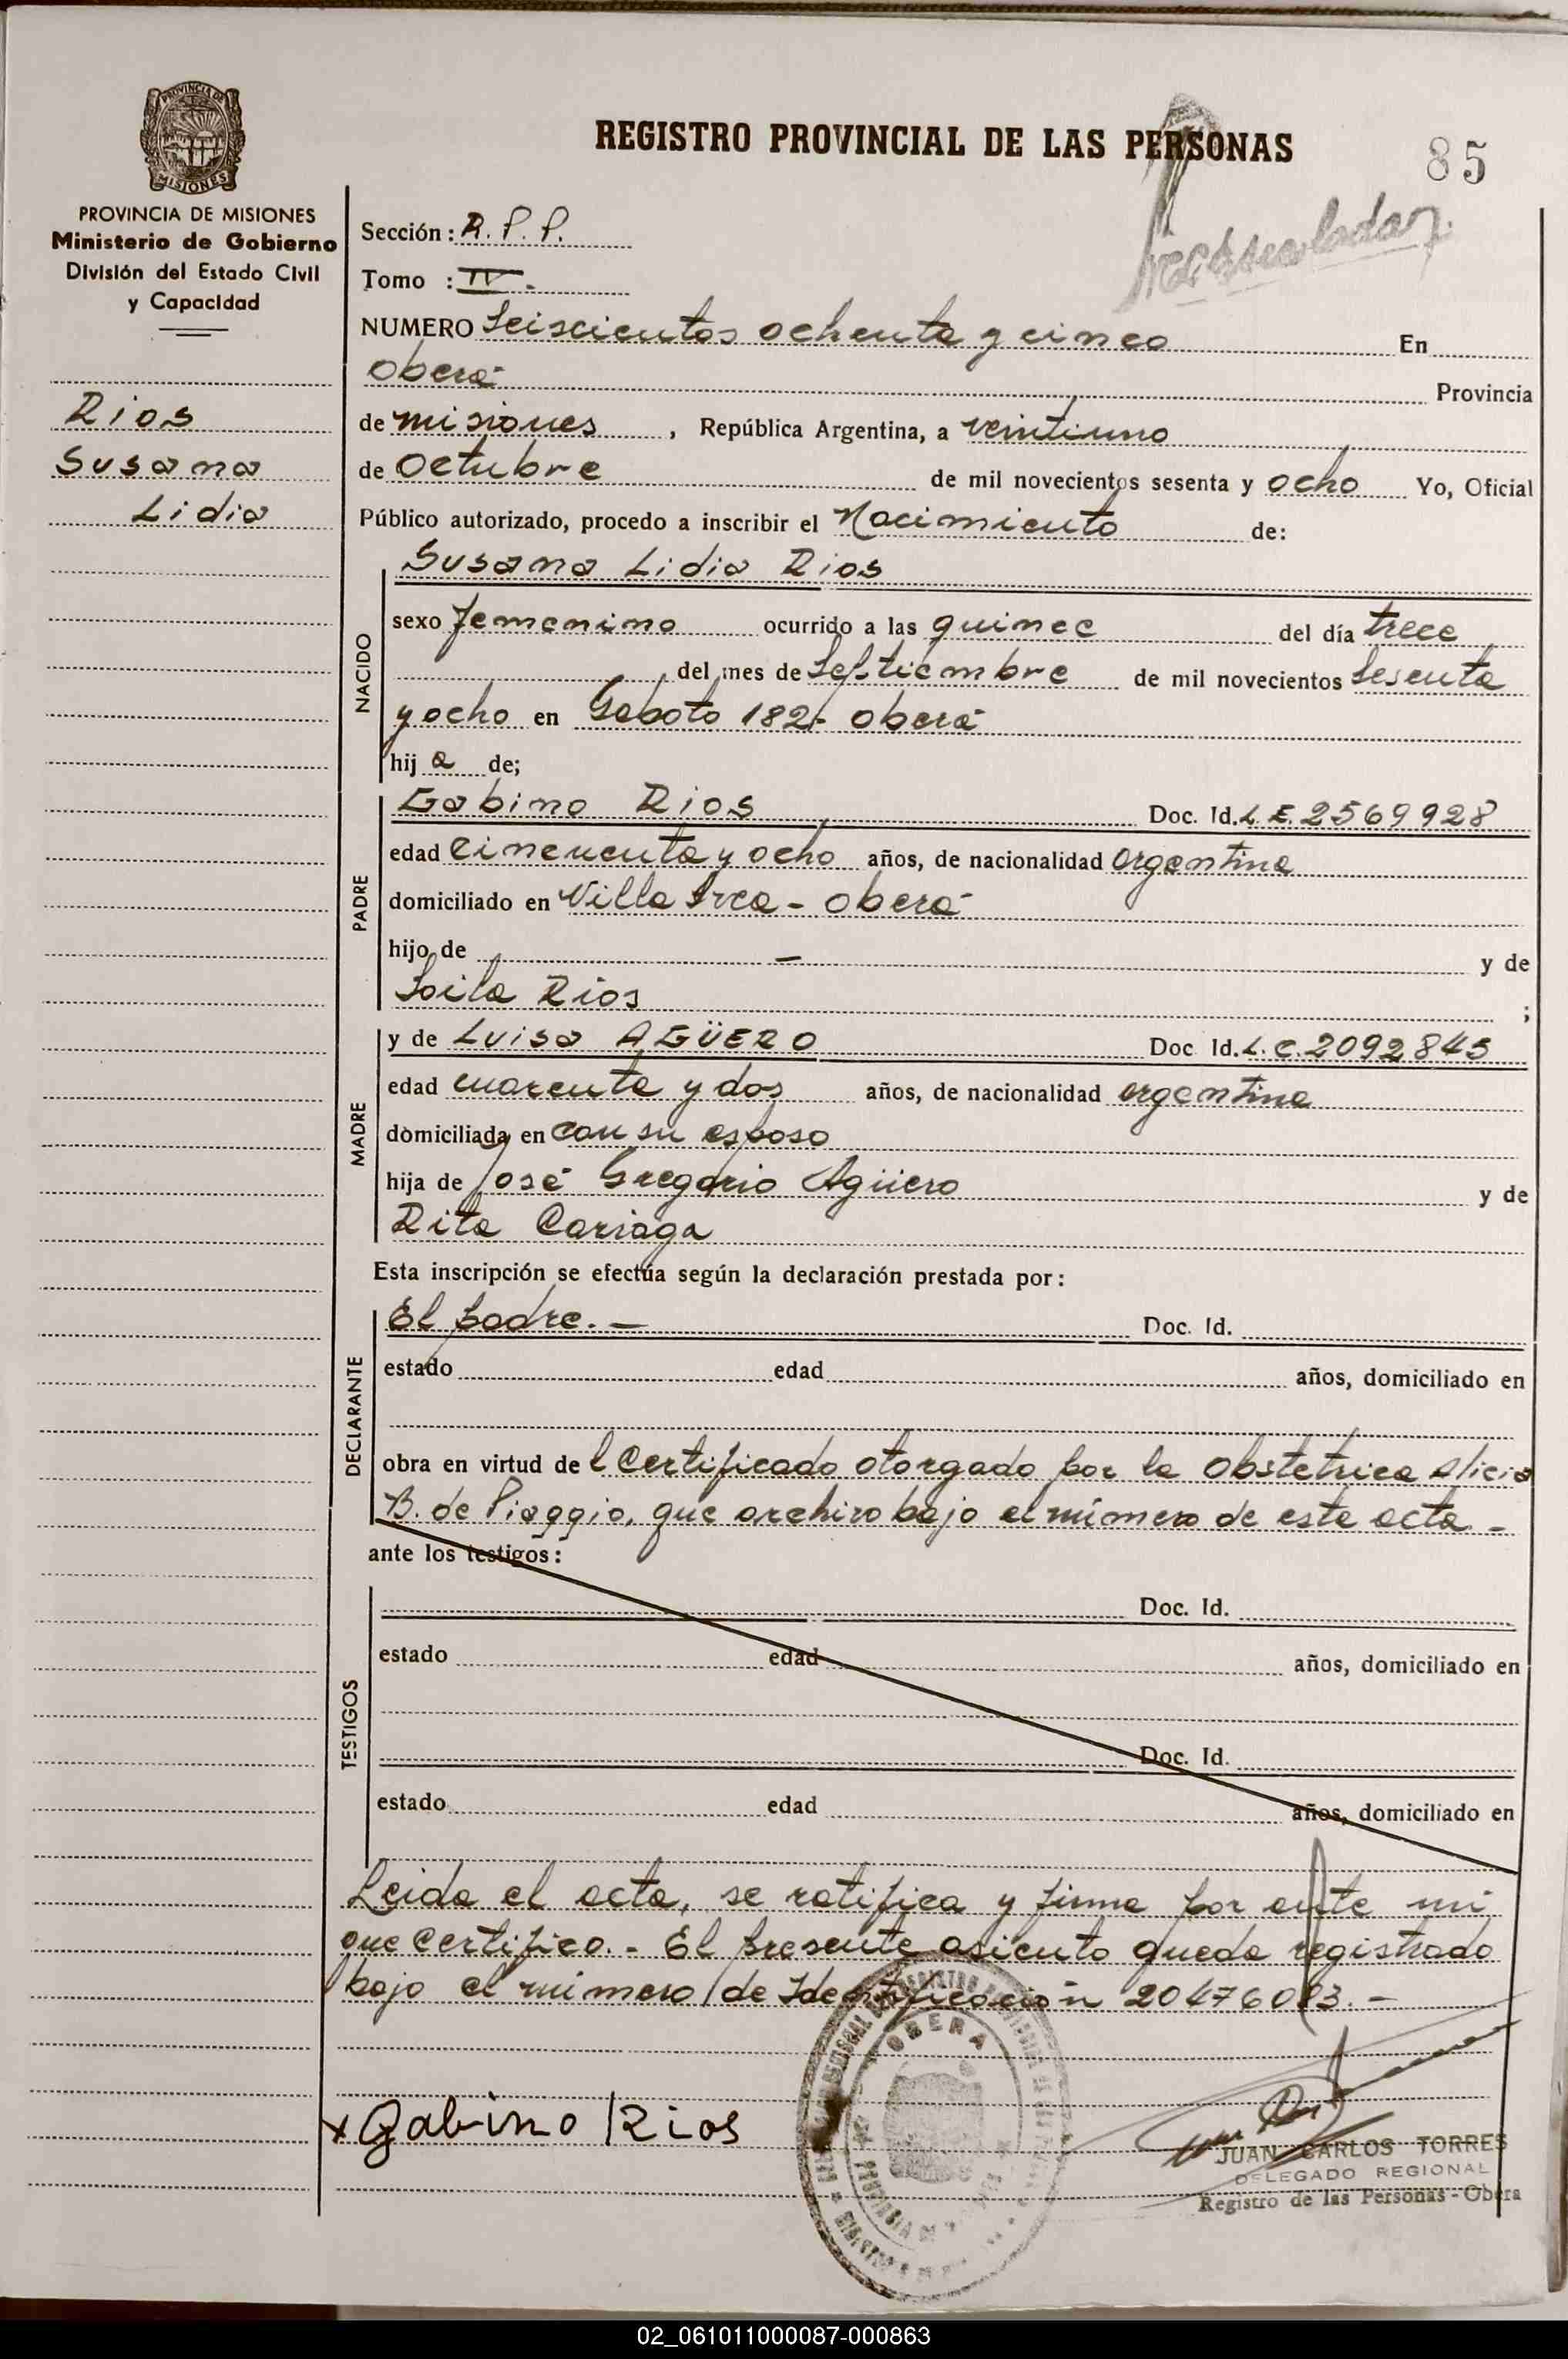 PROVINCIA DE
MISIONES
PROVINCIA DE MISIONES
Ministerio de Gobierno
División del Estado Civil
y Capacidad
REGISTRO PROVINCIAL DE LAS PERSONAS
85
Sección: R. P. P.
Tomo : IV.
NUMERO Seiscientos ochenta y cinco En
Oberá Provincia
de misiones, República Argentina, a veintiuno
de Octubre de mil novecientos sesenta y ocho Yo, Oficial
Público autorizado, procedo a inscribir el Nacimiento de:
Rios
Susana
Lidia
Susana Lidia Rios
NACIDO
sexo femenino ocurrido a las quince del día trece
del mes de Septiembre de mil novecientos sesenta
y ocho en Gaboto 182- Oberá
hij a de;
PADRE
Gabino Rios Doc. Id. L. E. 2569928
edad cincuenta y ocho años, de nacionalidad argentina
domiciliado en Villa - Oberá
hijo de - y de
Soila Rios ;
MADRE
y de Luisa AGÜERO Doc Id. L. C. 2092845
edad cuarenta y dos años, de nacionalidad argentina
domiciliada en con su esposo
hija de José Gregorio Agüero y de
Rita Cariaga
Esta inscripción se efectúa según la declaración prestada por:
DECLARANTE
El padre. - Doc. Id.
estado edad años, domiciliado en
obra en virtud de l Certificado otorgado por la obstetrica Alicia
B. de Piaggio, que archivo bajo el número de esta acta. -
ante los testigos:
TESTIGOS
Doc. Id.
estado edad años, domiciliado en
Doc. Id.
estado edad años, domiciliado en
Leida el acta, se ratifica y firma por ante mi
que certifico. - El presente asiento queda registrado
bajo el número de Identificación 20476083. -
OBERA
x Gabino Rios
JUAN CARLOS TORRES
DELEGADO REGIONAL
Registro de las Personas - Oberá
02_061011000087-000863